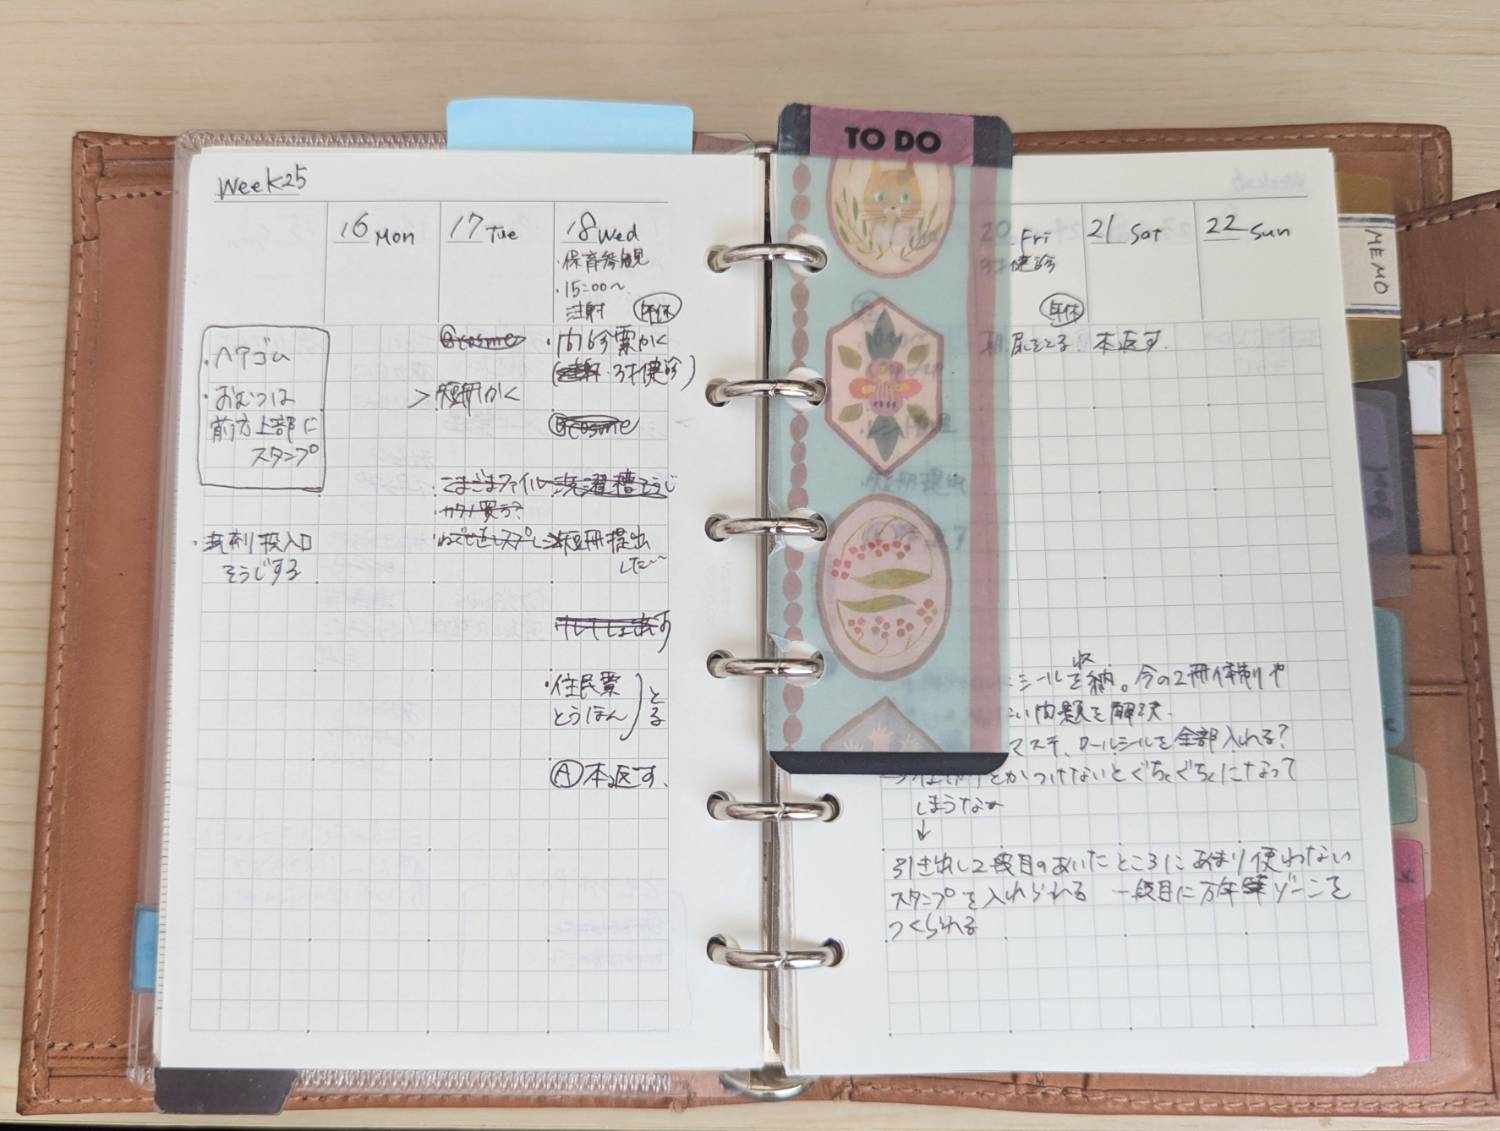 Week25
16 Mon
17 Tue
18 Wed
・保育参観
・15:00〜
注射 年休
・ヘアゴム
・おむつは
前方上部に
スタンプ
・洗剤投入口
そうじする
@cosme
> 短冊かく
・こまごまファイル
・カタノ買う?
・内診票かく
3才健診)
@cosme
洗濯槽そうじ
短冊提出
した〜
・住民票
とうほん
とる
Ⓐ本返す、
TO DO
20 Fri
3才健診
年休
朝、尿をとる、本返す、
短冊提出
21 Sat
22 Sun
MEMO
シールを収納。今の2冊体制や
い問題を解決
マステ、ロールシールを全部入れる?
をかつけないとぐちゃぐちゃになって
しまうなぁ
↓
引き出し2段目のあいたところにあまり使わない
スタンプを入れられる 一段目に万年筆ゾーンを
つくられる